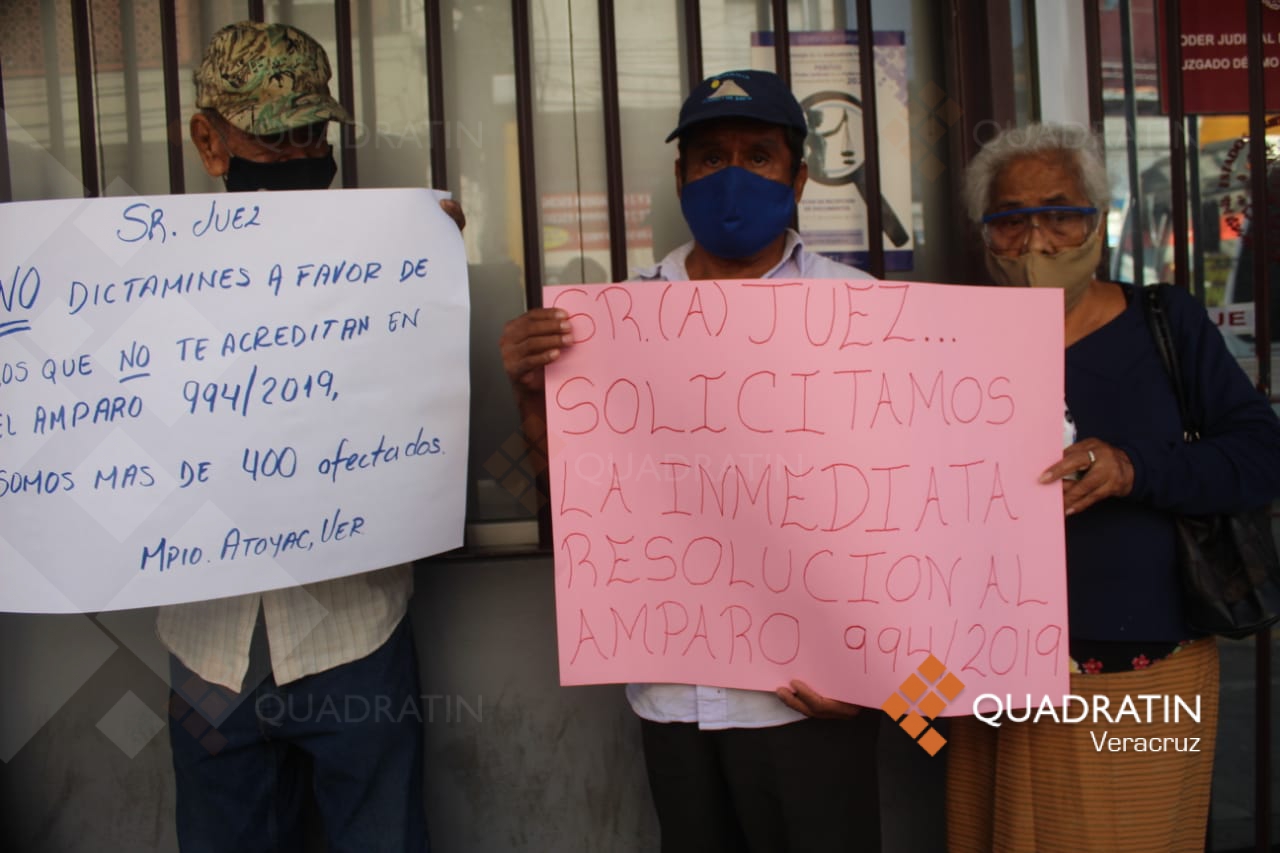 SR. JUEZ
NO DICTAMINES A FAVOR DE
OS QUE NO TE ACREDITAN EN
EL AMPARO 994/2019,
SOMOS MAS DE 400 afectados.
MPIO. ATOYAC, VER.
SR.(A) JUEZ...
SOLICITAMOS
LA INMEDIATA
RESOLUCION AL
AMPARO 994/2019
ODER JUDICIAL
UZGADO DÉ
QUADRATIN
Veracruz
QUADRATIN
QUADRATIN
QUADRATIN
QUADRATIN
QUADRATIN